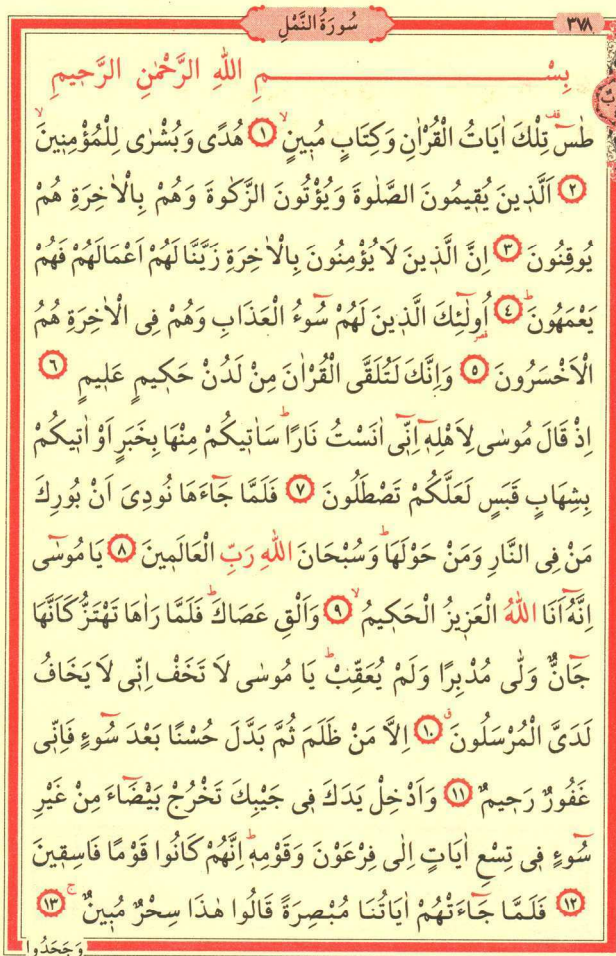 ٣٧٨
سُورَةُ النَّمْلِ
بِسْمِ اللهِ الرَّحْمٰنِ الرَّحٖيمِ
طٰسٓ تِلْكَ اٰيَاتُ الْقُرْاٰنِ وَكِتَابٍ مُبٖينٍۙ ﴿١﴾ هُدًى وَبُشْرٰى لِلْمُؤْمِنٖينَۙ
﴿٢﴾ اَلَّذٖينَ يُقٖيمُونَ الصَّلٰوةَ وَيُؤْتُونَ الزَّكٰوةَ وَهُمْ بِالْاٰخِرَةِ هُمْ
يُوقِنُونَ ﴿٣﴾ اِنَّ الَّذٖينَ لَا يُؤْمِنُونَ بِالْاٰخِرَةِ زَيَّنَّا لَهُمْ اَعْمَالَهُمْ فَهُمْ
يَعْمَهُونَؕ ﴿٤﴾ اُو۬لٰٓئِكَ الَّذٖينَ لَهُمْ سُٓوءُ الْعَذَابِ وَهُمْ فِى الْاٰخِرَةِ هُمُ
الْاَخْسَرُونَ ﴿٥﴾ وَاِنَّكَ لَتُلَقَّى الْقُرْاٰنَ مِنْ لَدُنْ حَكٖيمٍ عَلٖيمٍ ﴿٦﴾
اِذْ قَالَ مُوسٰى لِاَهْلِهٖٓ اِنّٖٓى اٰنَسْتُ نَارًاؕ سَاٰتٖيكُمْ مِنْهَا بِخَبَرٍ اَوْ اٰتٖيكُمْ
بِشِهَابٍ قَبَسٍ لَعَلَّكُمْ تَصْطَلُونَ ﴿٧﴾ فَلَمَّا جَٓاءَهَا نُودِىَ اَنْ بُورِكَ
مَنْ فِى النَّارِ وَمَنْ حَوْلَهَاؕ وَسُبْحَانَ اللهِ رَبِّ الْعَالَمٖينَ ﴿٨﴾ يَا مُوسٰٓى
اِنَّهُٓ اَنَا اللهُ الْعَزٖيزُ الْحَكٖيمُۙ ﴿٩﴾ وَاَلْقِ عَصَاكَؕ فَلَمَّا رَاٰهَا تَهْتَزُّ كَاَنَّهَا
جَٓانٌّ وَلّٰى مُدْبِرًا وَلَمْ يُعَقِّبْؕ يَا مُوسٰى لَا تَخَفْ اِنّٖى لَا يَخَافُ
لَدَىَّ الْمُرْسَلُونَۗ ﴿١٠﴾ اِلَّا مَنْ ظَلَمَ ثُمَّ بَدَّلَ حُسْنًا بَعْدَ سُٓوءٍ فَاِنّٖى
غَفُورٌ رَحٖيمٌ ﴿١١﴾ وَاَدْخِلْ يَدَكَ فٖى جَيْبِكَ تَخْرُجْ بَيْضَٓاءَ مِنْ غَيْرِ
سُٓوءٍ فٖى تِسْعِ اٰيَاتٍ اِلٰى فِرْعَوْنَ وَقَوْمِهٖؕ اِنَّهُمْ كَانُوا قَوْمًا فَاسِقٖينَ
﴿١٢﴾ فَلَمَّا جَٓاءَتْهُمْ اٰيَاتُنَا مُبْصِرَةً قَالُوا هٰذَا سِحْرٌ مُبٖينٌۚ ﴿١٣﴾
وَجَحَدُوا